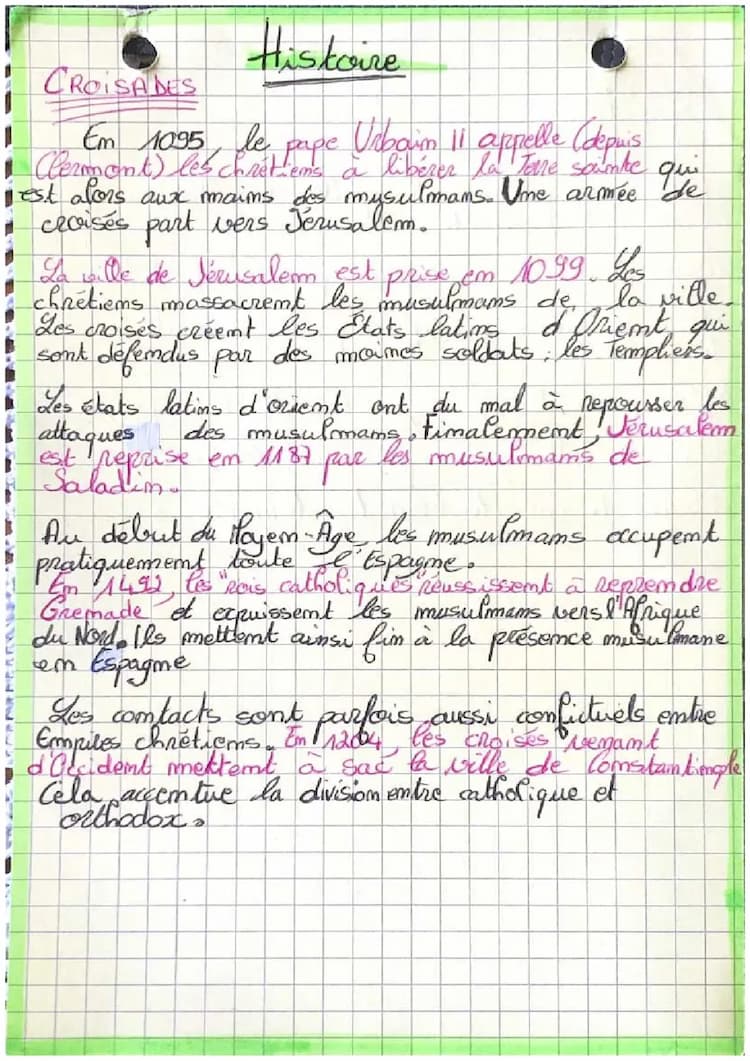 Histoire
CROISADES
En 1095, le pape Urbain II appelle (depuis
Clermont) les chrétiens à libérer la Terre sainte qui
est alors aux mains des musulmans. Une armée de
croisés part vers Jérusalem.
La ville de Jérusalem est prise en 1099. Les
chrétiens massacrent les musulmans de la ville.
Les croisés créent les États latins d'Orient, qui
sont défendus par des moines soldats : les Templiers.
Les états latins d'orient ont du mal à repousser les
attaques des musulmans. Finalement, Jérusalem
est reprise en 1187 par les musulmans de
Saladin.
Au début du Moyen-Âge, les musulmans occupent
pratiquement toute l'Espagne.
En 1492, les "rois catholiques" réussissent à reprendre
Grenade et expuissent les musulmans vers l'Afrique
du Nord. Ils mettent ainsi fin à la présence musulmane
en Espagne
Les contacts sont parfois aussi conflictuels entre
Empires chrétiens. En 1204, les croisés venant
d'Occident mettent à sac la ville de Constantinople
Cela accentue la division entre catholique et
orthodox.